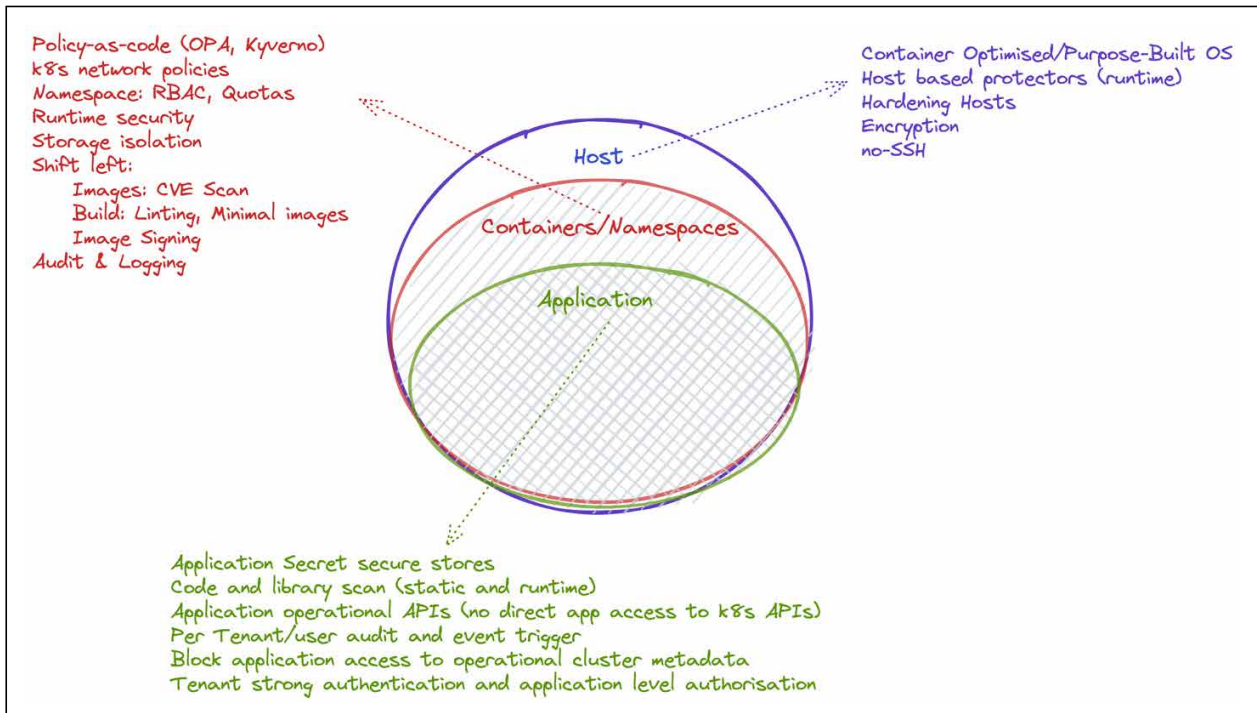 Policy-as-code (OPA, Kyverno)
k8s network policies
Namespace: RBAC, Quotas
Runtime security
Storage isolation
Shift left:
Images: CVE Scan
Build: Linting, Minimal images
Image Signing
Audit & Logging
Container Optimised/Purpose-Built OS
Host based protectors (runtime)
Hardening Hosts
Encryption
no-SSH
Host
Containers/Namespaces
Application
Application Secret secure stores
Code and library scan (static and runtime)
Application operational APIs (no direct app access to k8s APIs)
Per Tenant/user audit and event trigger
Block application access to operational cluster metadata
Tenant strong authentication and application level authorisation